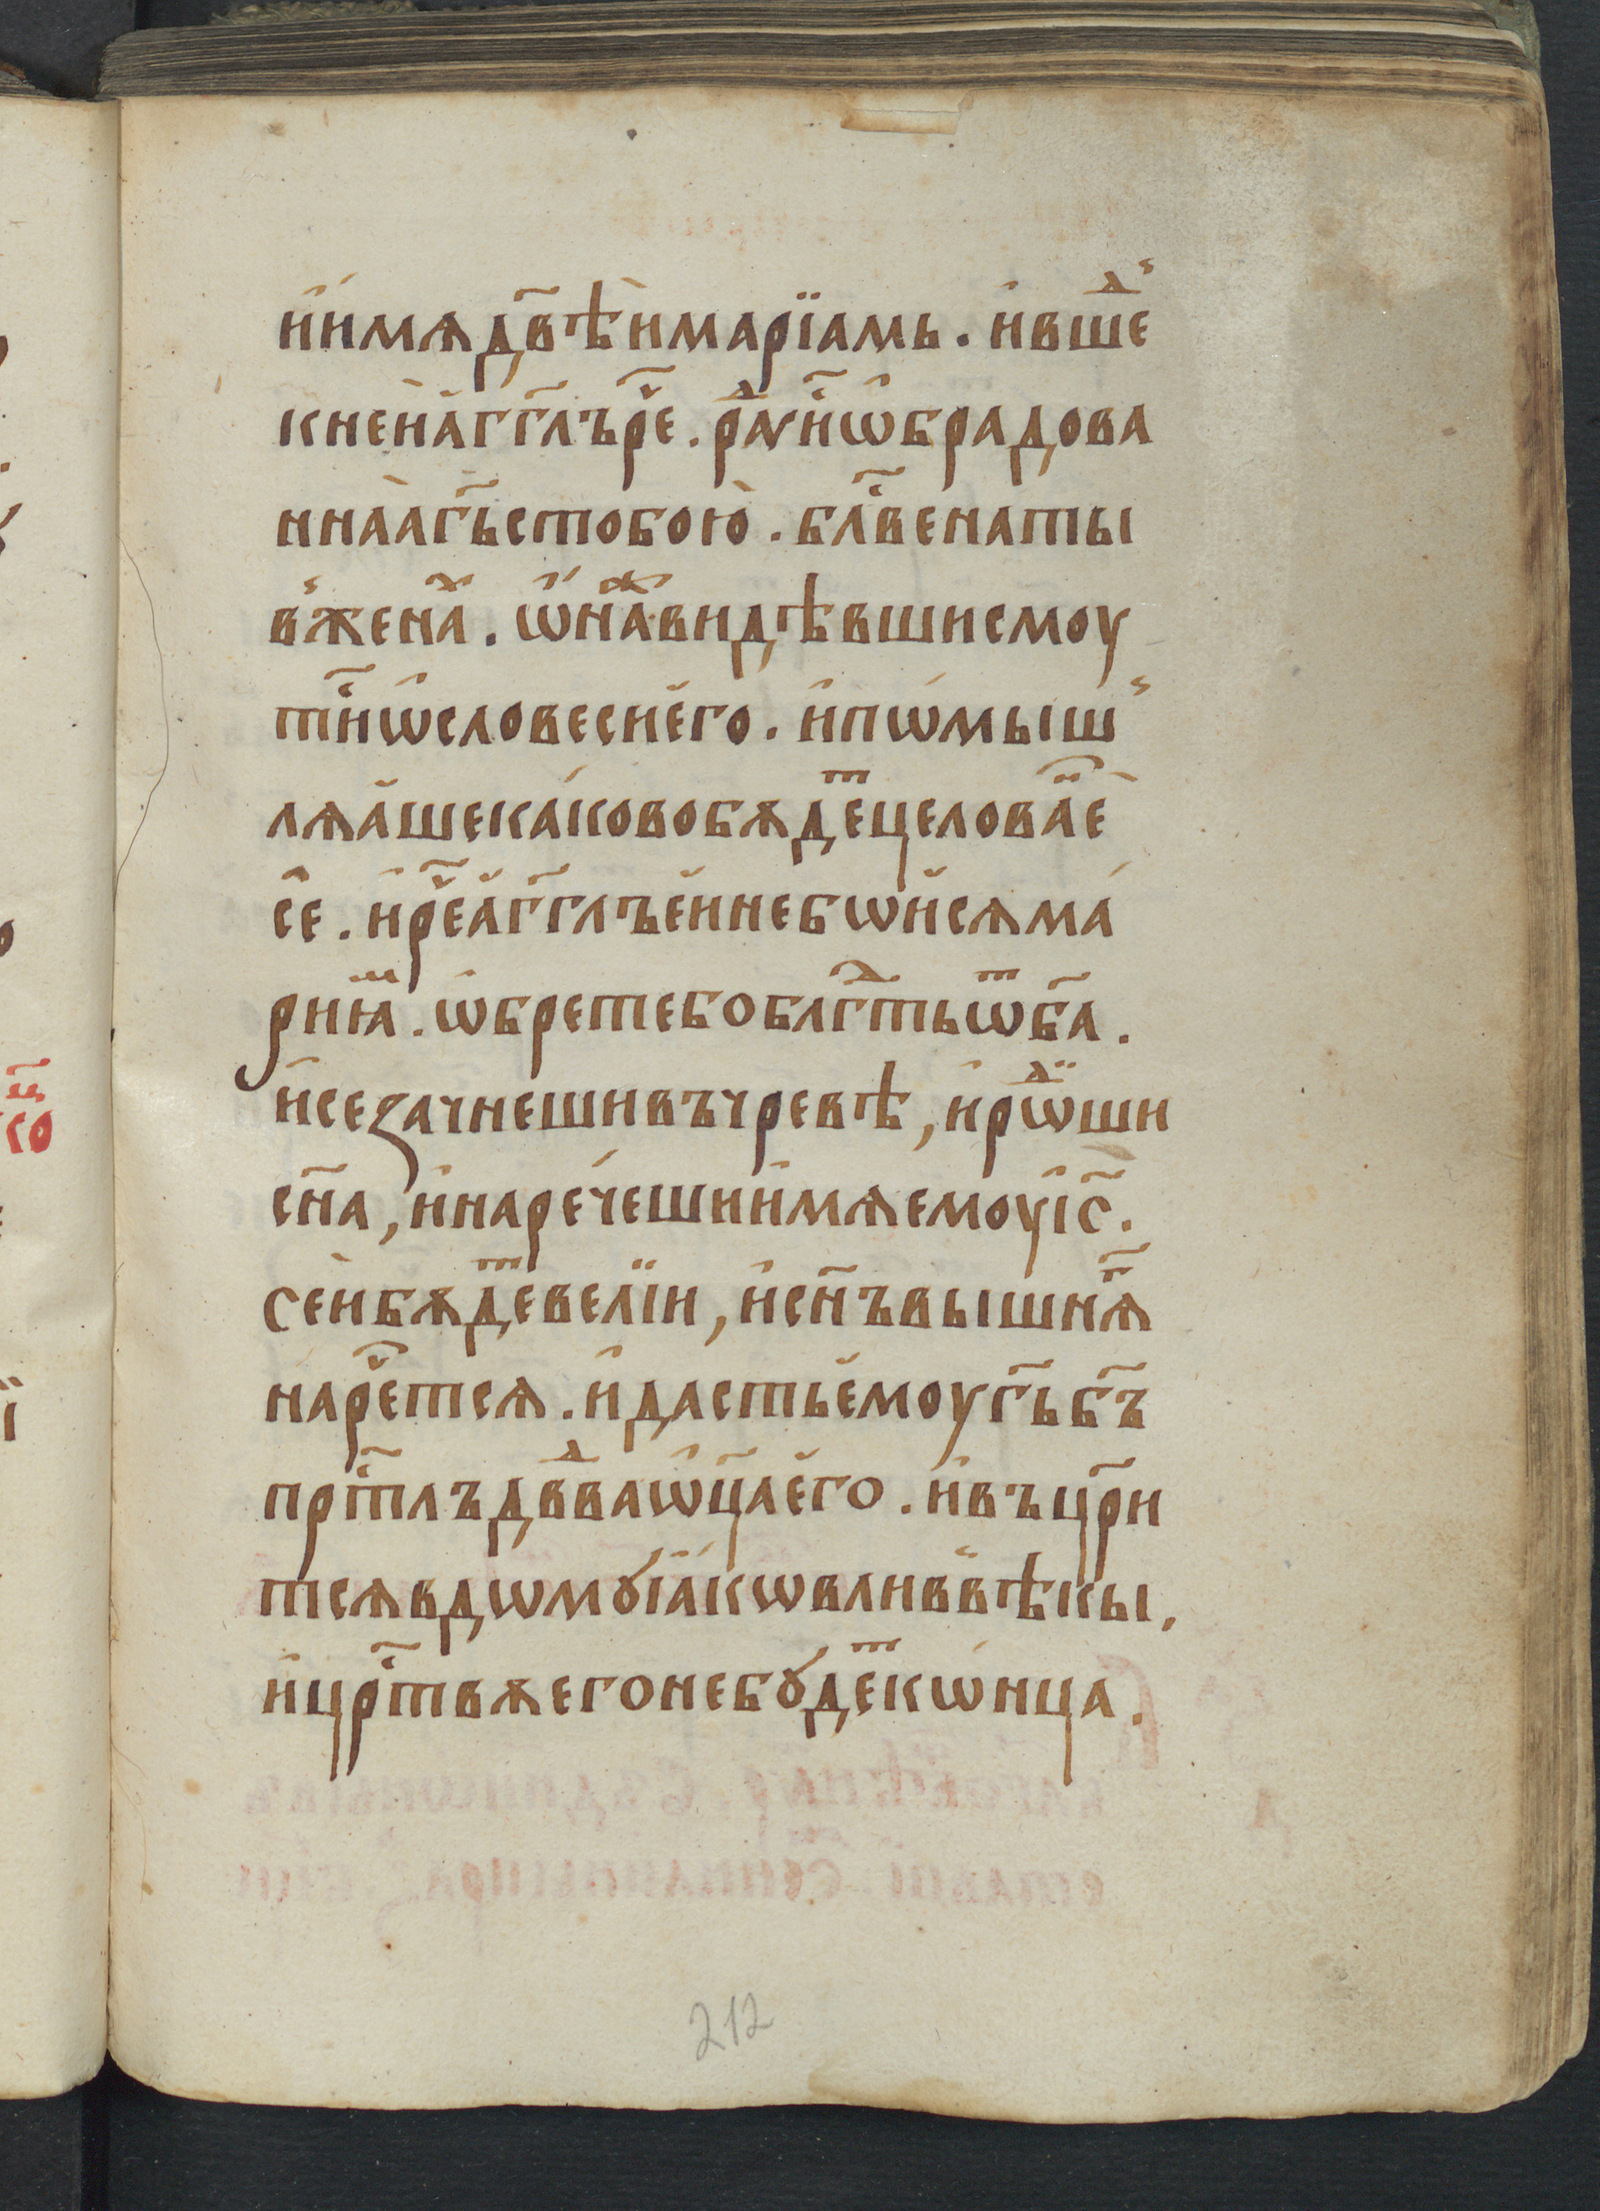 и҆и҆мѧдв҃ѣи҆марїамь. и҆вшⷣе
кнене҆а҆гг҃лъре҃ⷱ. раⷣꙋи҃сѧѡ҆брадова
ннаа҆ гь҃стобою̀. блⷭ҇венаты
вженаⷯ. ѡ҆наⷤвидѣвшисмоу
ти҃сѧѡ҆словесне҆го. и҆пѡмыш
лѧа҆шекаковобѫдеⷮцеловаⷩ҇їе
се҆. и҆ре҃ⷱа҆гг҃лъе҆и҆небѡи҆сѧма
риꙗⷨ. ѡ҆бретебоблгⷣтьѿба҃.
и҆сезачнешивъчревѣ, и҆рѡⷣши
сн҃а, и҆наречешии҆мѧемоуі҆с҃.
сеи҆бѫдеⷮвелїи, и҆сн҃ъвышнѧⷢ҇
нареⷱ҇тсѧ. и҆дастье҆моугь҃бъ҃
прⷭ҇тлъдвⷣваѡ҆ц҃ае҆го. и҆въцр҃и
тсѧвдѡмꙋі҆а҆кѡвливвѣкы,
и҆црⷭ҇твѫегонебꙋдеⷮкѡнца.
212